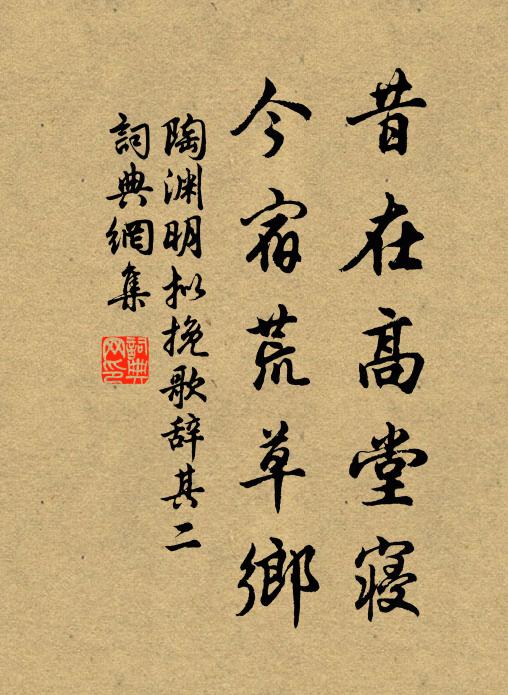 昔在高堂寝
今宿荒草鄉
陶渊明拟挽歌辞其二
詞典網集
詞典
网印